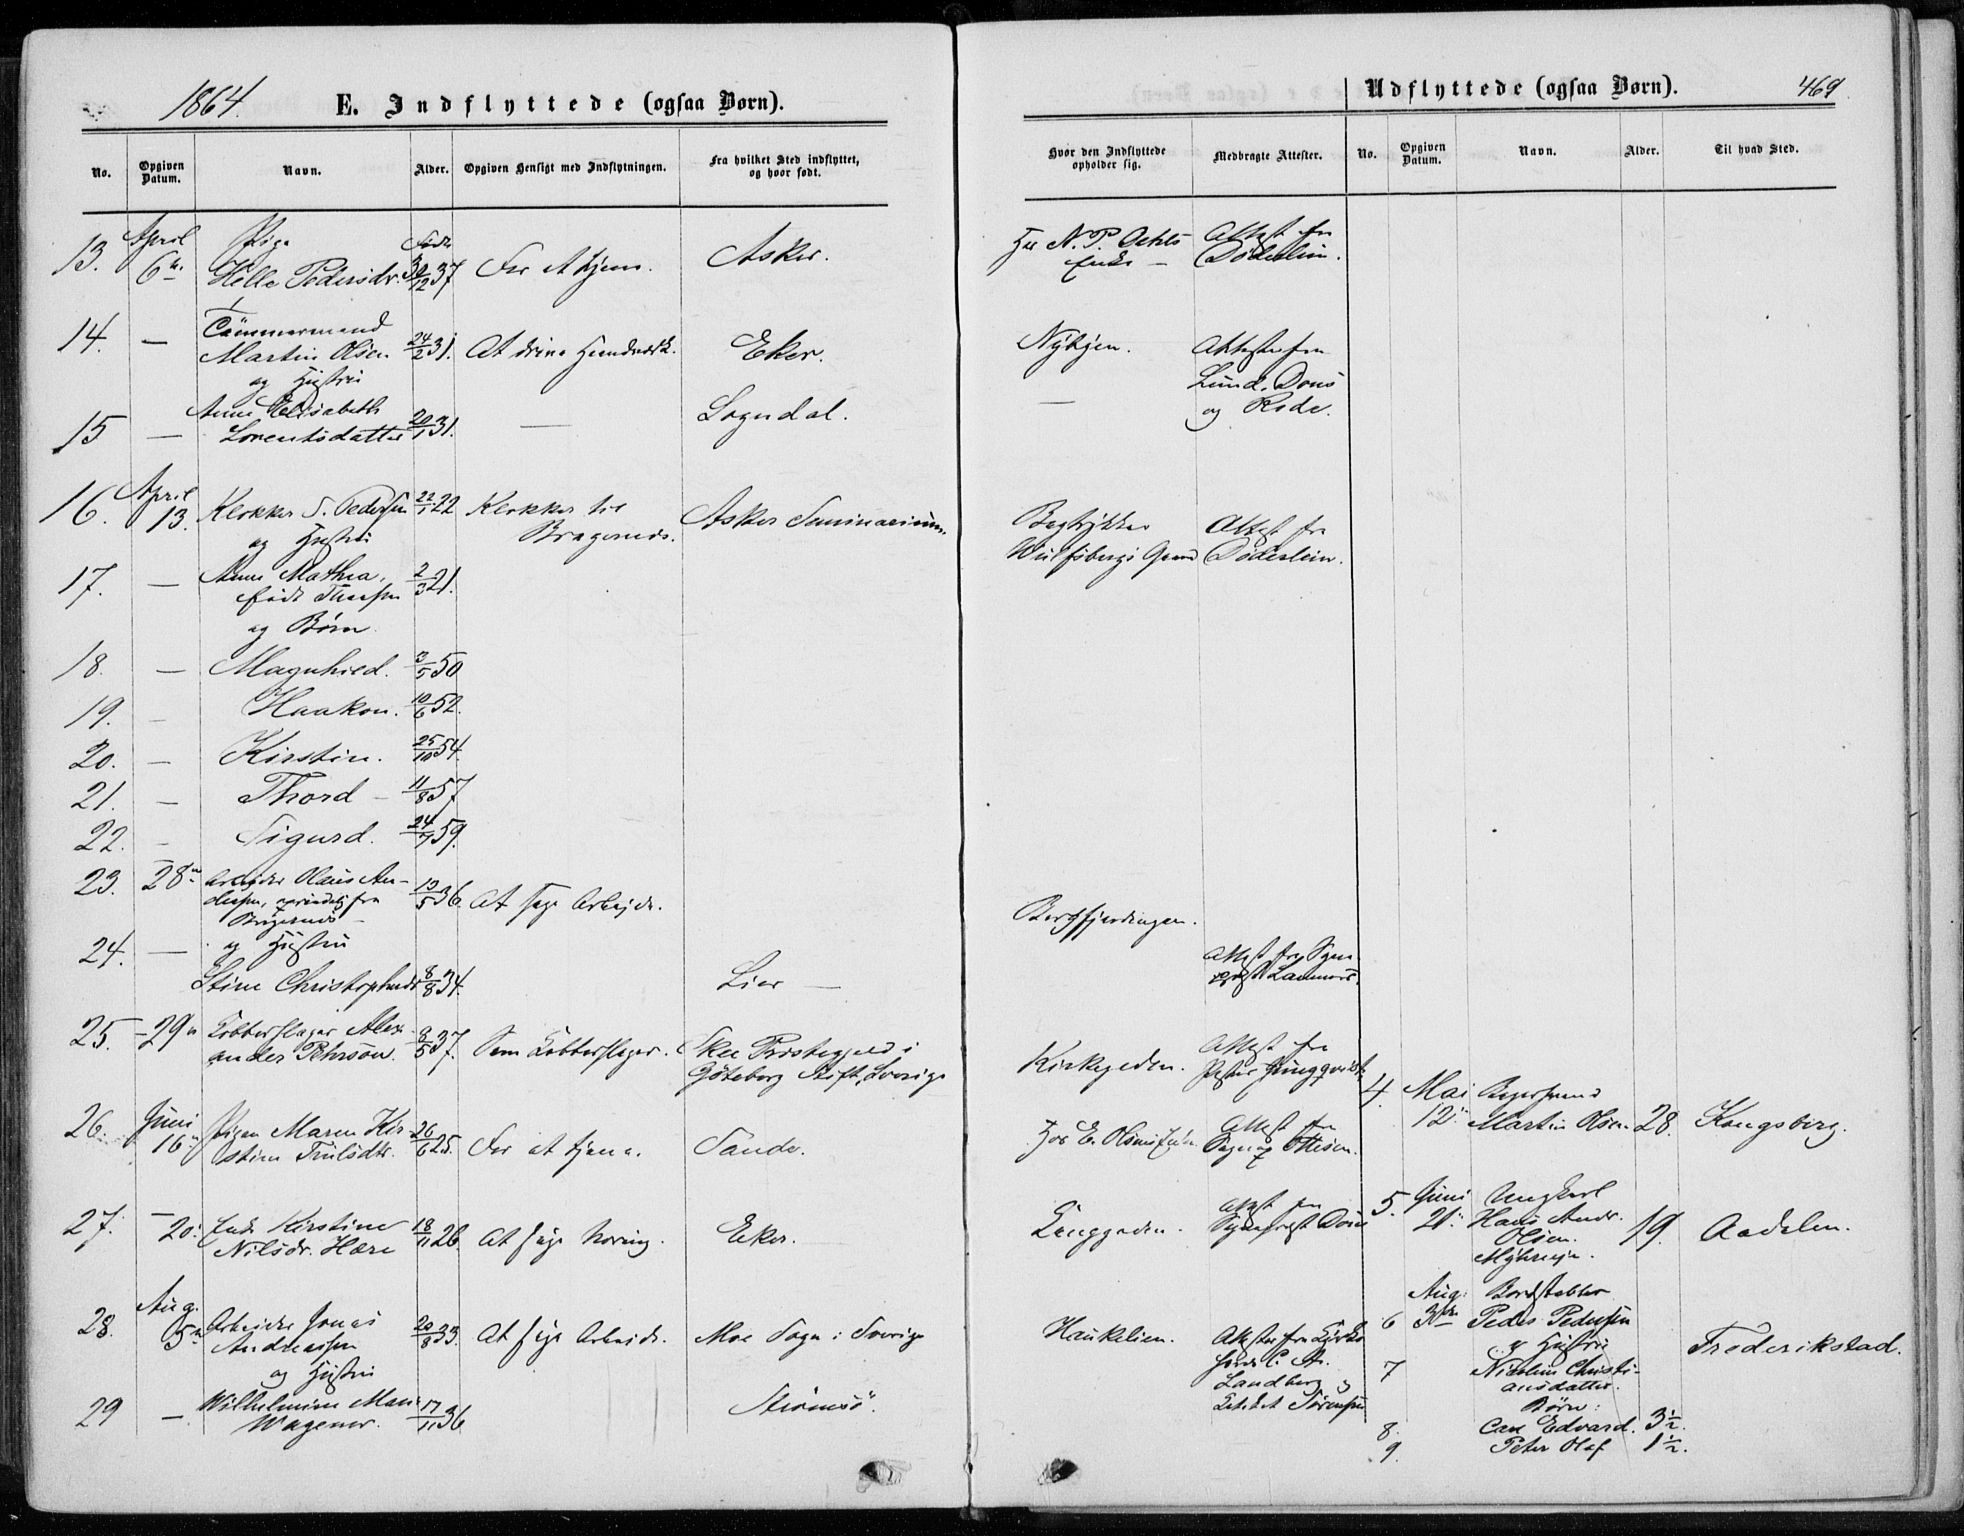 1864.
E. Indflyttede (ogsaa Børn).
No.
Opgiven Datum.
Navn.
Alder.
Opgiven Hensigt med Indflytningen.
Fra hvilket Sted indflyttet, og hvor født.
13. April 6te Pige Helle Pedersdr. Født 30/12 37 For at tjene. Asker.
14. — Tømmermand Martin Olsen 24/2 31. At drive Haandværk. Eker.
og Hustru
15 — Anne Elisabeth Lorentsdatter 20/1 31. — Sogndal.
16. April 13. Klokker S. Pedersen 22/1 22 Klokker til Bragernes. Asker Seminarium.
og Hustru
17. — Anne Mathea, født 2/3 21.
og Børn
18. — Magnhild. 3/5 50
19. — Haakon. 10/6 52.
20. — Kirstin. 25/10 54.
21. — Thord — 11/8 57
22. — Sigurd. 24/7 59.
23. — 28de Arbeider Olaus An-
dersen, oprindelig fra
Bragernes — 13/5 36. At søge Arbejde.
24. — og Hustru
Stine Christophersd. 8/8 34. Lier —
25. — 29de Kobberslager Alex-
ander Pehrson. 9/5 37. Som Kobberslager. Skee Prestegjeld i
Göteborg Stift, Sverige
26. Juni 16de Pigen Maren Kir-
stine Trulsdtr. 26/6 25. For at tjene. Sande.
27. — 20. Enke Kirstine
Nilsdr. Hære 18/11 26. At søge Næring. Eker.
28. Aug. 5te Arbeider Jonas
Andreassen 20/8 33. At søge Arbeide. Moe Sogn i Sverige
og Hustru
29 — Wilhelmine Marie
Wagener. 17/11 36 Strømsø.
Udflyttede (ogsaa Børn).
469.
Hvor den Indflyttede opholder sig.
Medbragte Attester.
No.
Opgiven Datum.
Navn.
Alder.
Til hvad Sted.
Hos N. P. Enke — Attest fra Døderlein.
Nybyen. Attester fra
Lund, Dons
— og Rode.
Bogtrykker Attest fra
Wulfsbergs Gaard Døderlein.
Bergfjerdingen.
Attest fra Sogne-
prest Lammers.
Kirkegaden. Attest fra
Pastor Ljungqvist.
Hos E. Olsens Enke. Attest fra
Sogneprest Ottesen.
Langgaden. Attest fra
Sogneprest Dons
Haukelien. Attester fra
C. A.
Landberg og
Sørensen
4. Mai 12te Martin Olsen 28. Kongsberg.
5. Juni 21de Ungkarl
Hans Andr.
Olsen. 19. Aadalen.
6 Aug: 3die Bordstabler
Peder Pedersen
og Hustru Frederikstad.
7 Nicoline Christi-
ansdatter.
Børn:
8. Carl Edvard. 3½.
9. Peter Olaf 1½.